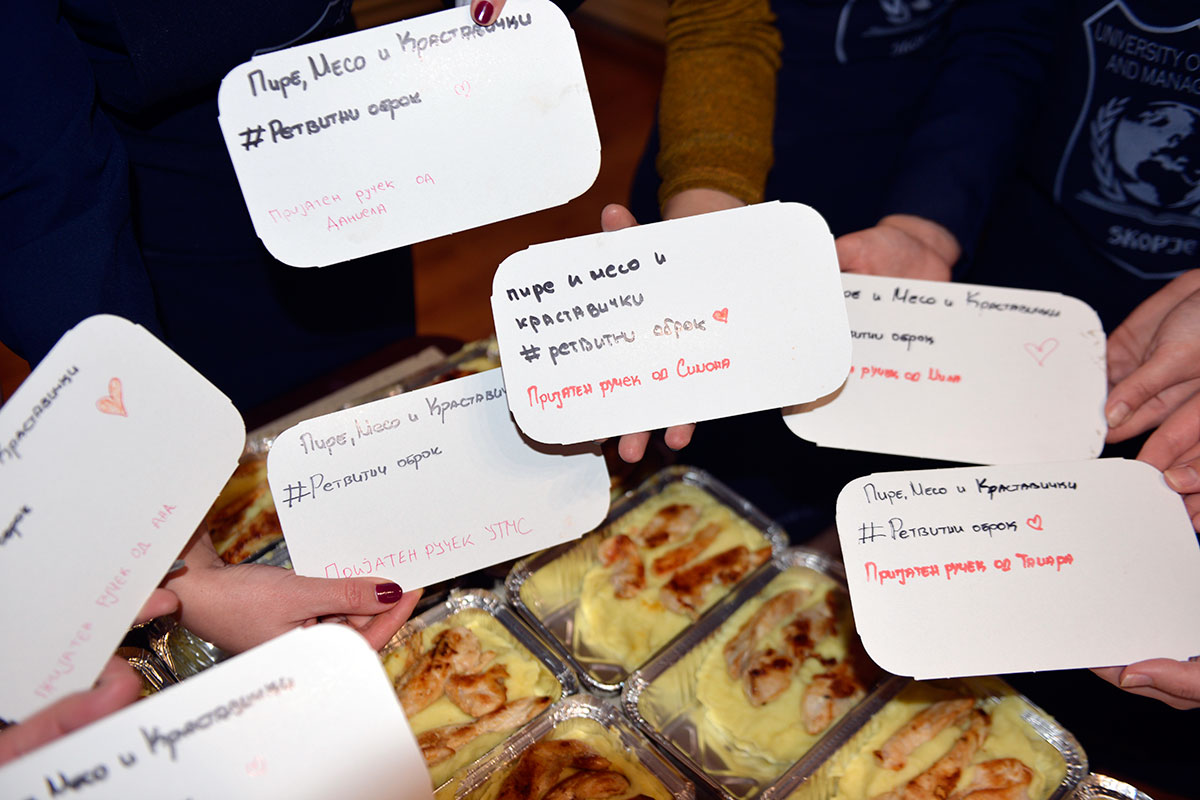 Пире, Месо и Краставички
#Ретвитни оброк
Пријатен ручек од
Даниела
UNIVERSITY O
AND MANAG
SKOPJE
пире и месо и
краставички
#ретвитни оброк
Пријатен ручек од Симона
е и Месо и Краставички
оброк
ручек од
Краставички
оброк
Пријатен ручек од Ана
Пире, Месо и Краставич
#Ретвитни оброк
Пријатен ручек УТМС
Пире, Месо и Краставички
#Ретвитни оброк
Пријатен ручек од Тамара
Месо и Краставички